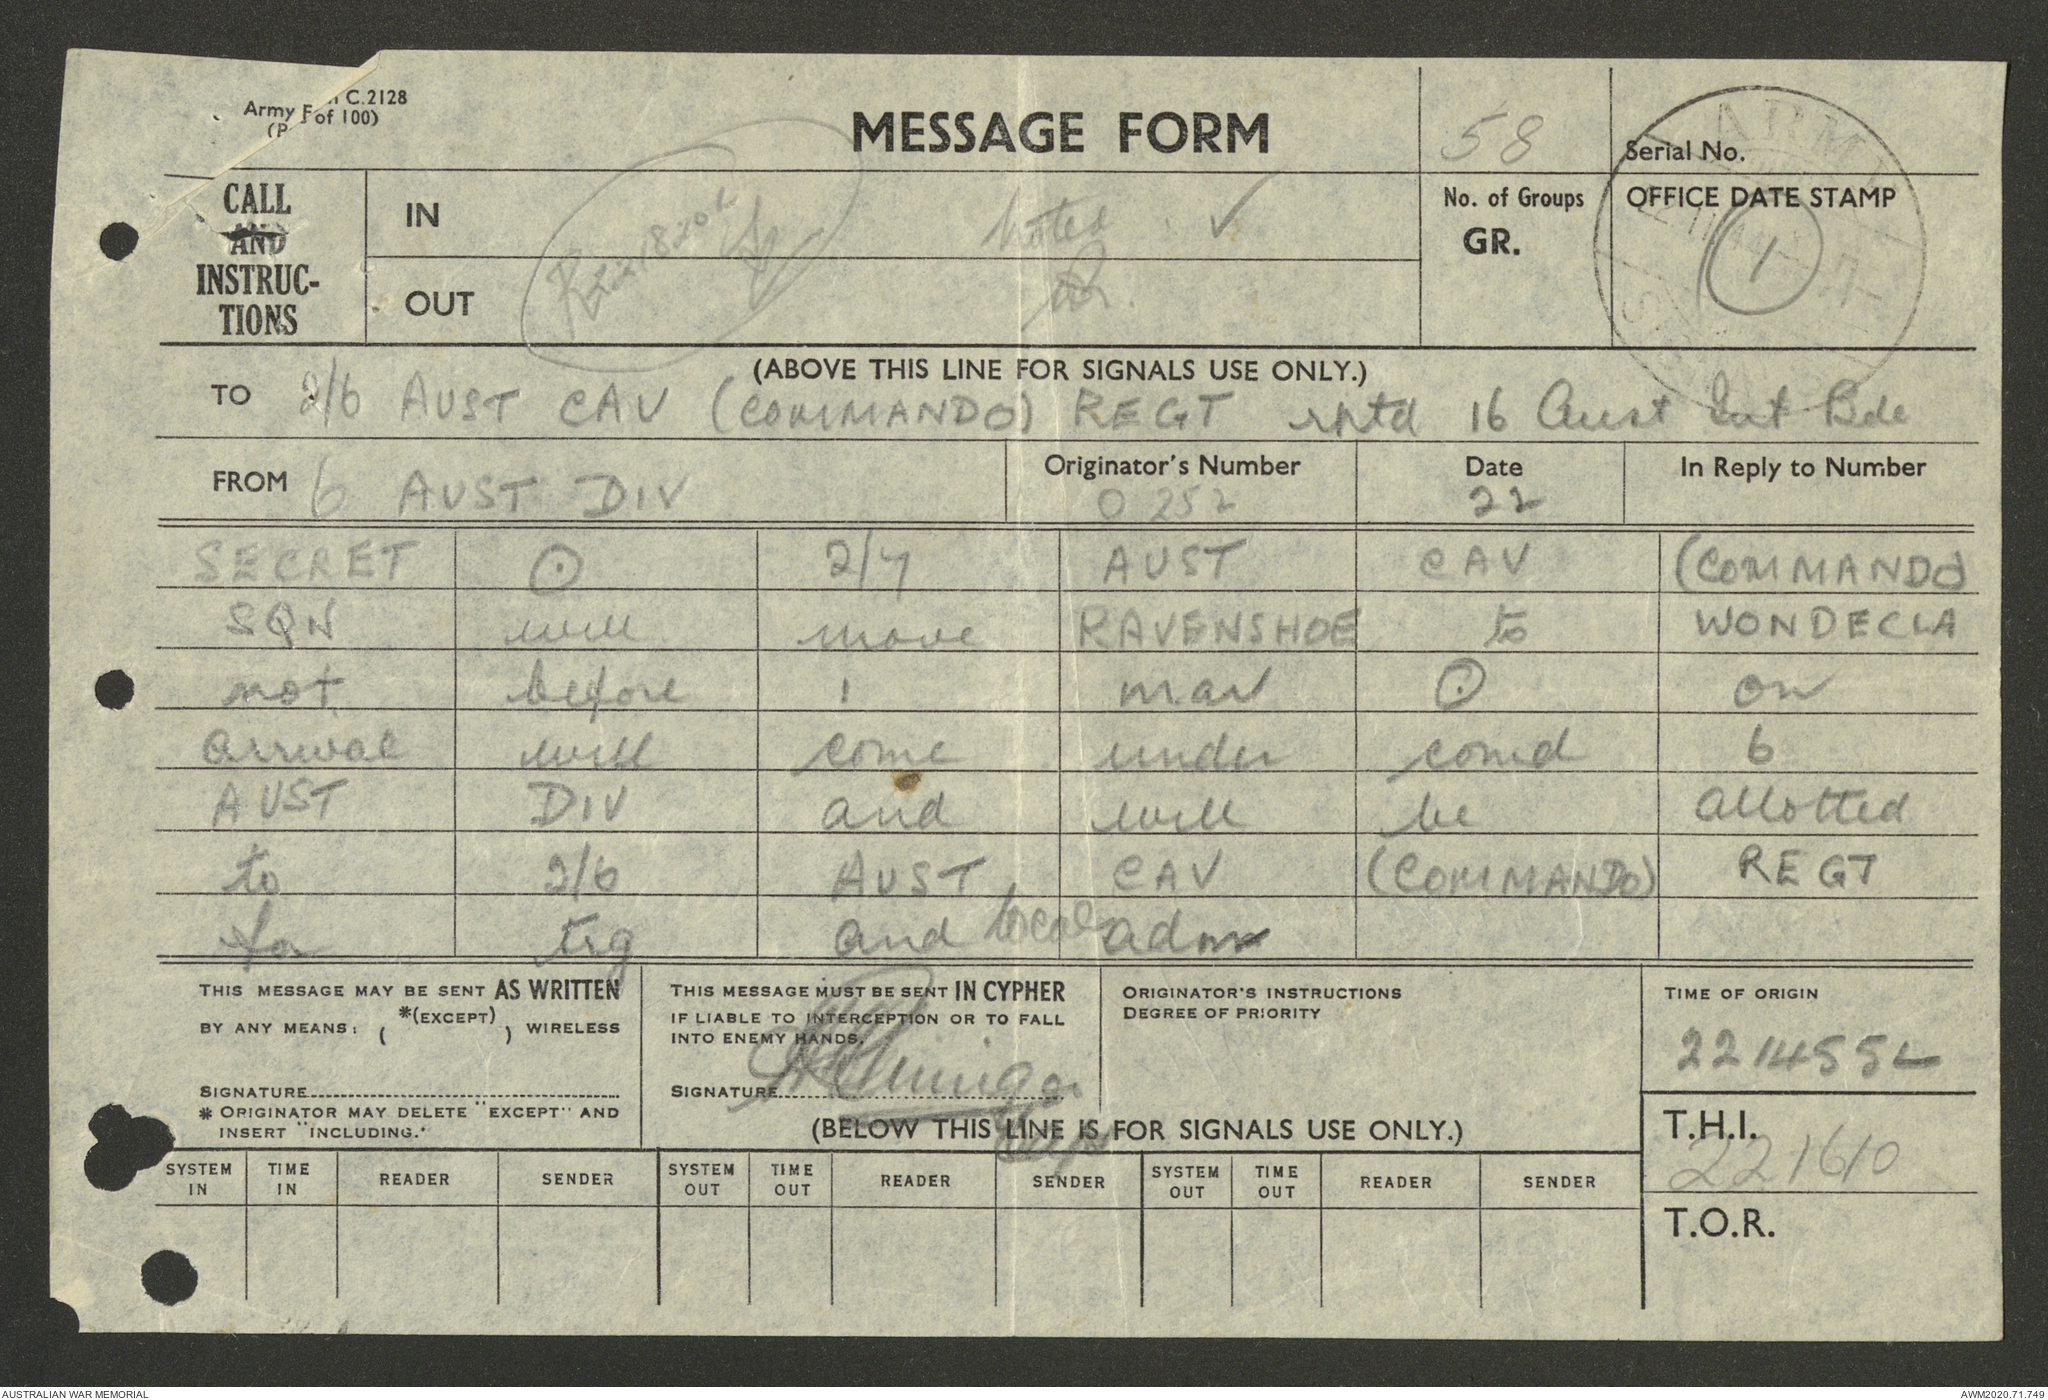 Army F C.2128
(P of 100)
MESSAGE FORM
58
Serial No.
CALL
AND
INSTRUC-
TIONS
IN
Noted ✓
OUT
No. of Groups
GR.
OFFICE DATE STAMP
ARMY
1
(ABOVE THIS LINE FOR SIGNALS USE ONLY.)
TO 2/6 AUST CAV (COMMANDO) REGT rptd 16 Aust Inf Bde
FROM 6 AUST DIV
Originator's Number
0 252
Date
22
In Reply to Number
SECRET ⊙ 2/7 AUST CAV (COMMANDO
SQN will move RAVENSHOE to WONDECLA
not before 1 mar ⊙ on
arrival will come under comd 6
AUST DIV and will be allotted
to 2/6 AUST CAV (COMMANDO) REGT
for trg and local adm
THIS MESSAGE MAY BE SENT AS WRITTEN
BY ANY MEANS: ( *(EXCEPT) ) WIRELESS
SIGNATURE
* ORIGINATOR MAY DELETE "EXCEPT" AND
INSERT "INCLUDING."
THIS MESSAGE MUST BE SENT IN CYPHER
IF LIABLE TO INTERCEPTION OR TO FALL
INTO ENEMY HANDS.
SIGNATURE
ORIGINATOR'S INSTRUCTIONS
DEGREE OF PRIORITY
TIME OF ORIGIN
221455L
(BELOW THIS LINE IS FOR SIGNALS USE ONLY.)
T.H.I.
221610
T.O.R.
SYSTEM IN TIME IN READER SENDER SYSTEM OUT TIME OUT READER SENDER SYSTEM OUT TIME OUT READER SENDER
AUSTRALIAN WAR MEMORIAL
AWM2020.71.749